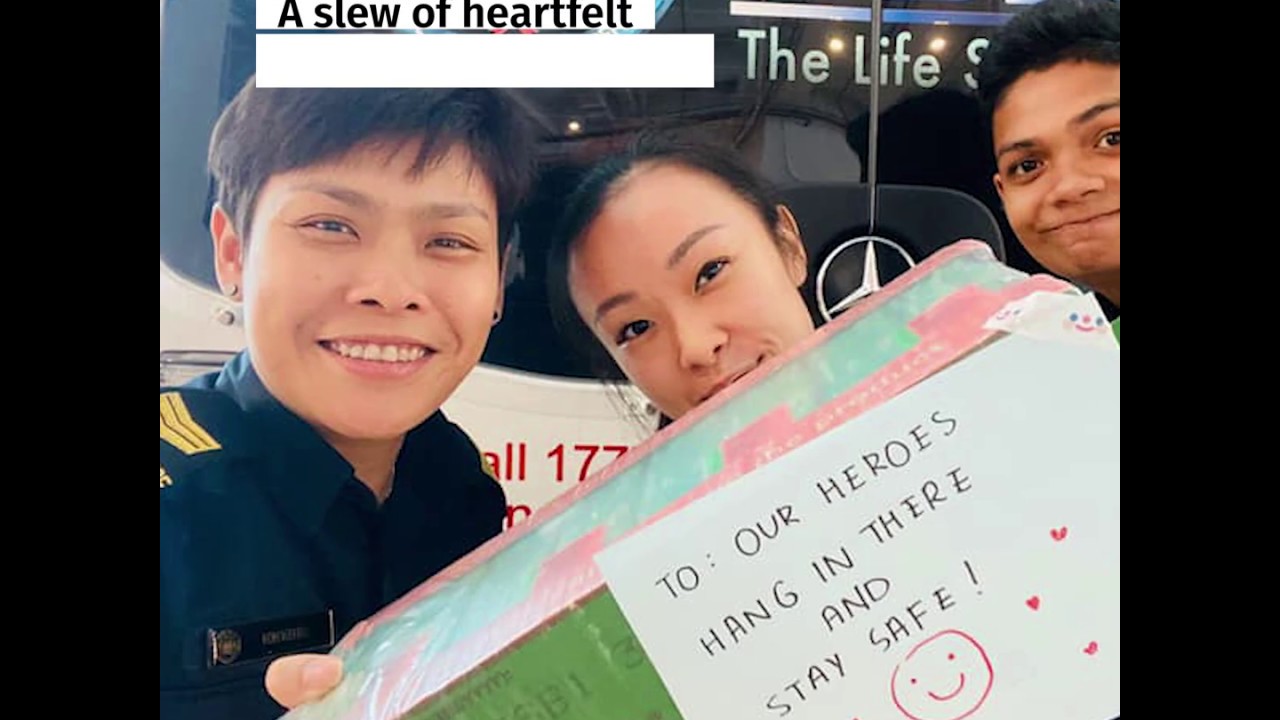 A slew of heartfelt
The Life S
all 177
TO: OUR HEROES
HANG IN THERE
AND
STAY SAFE!